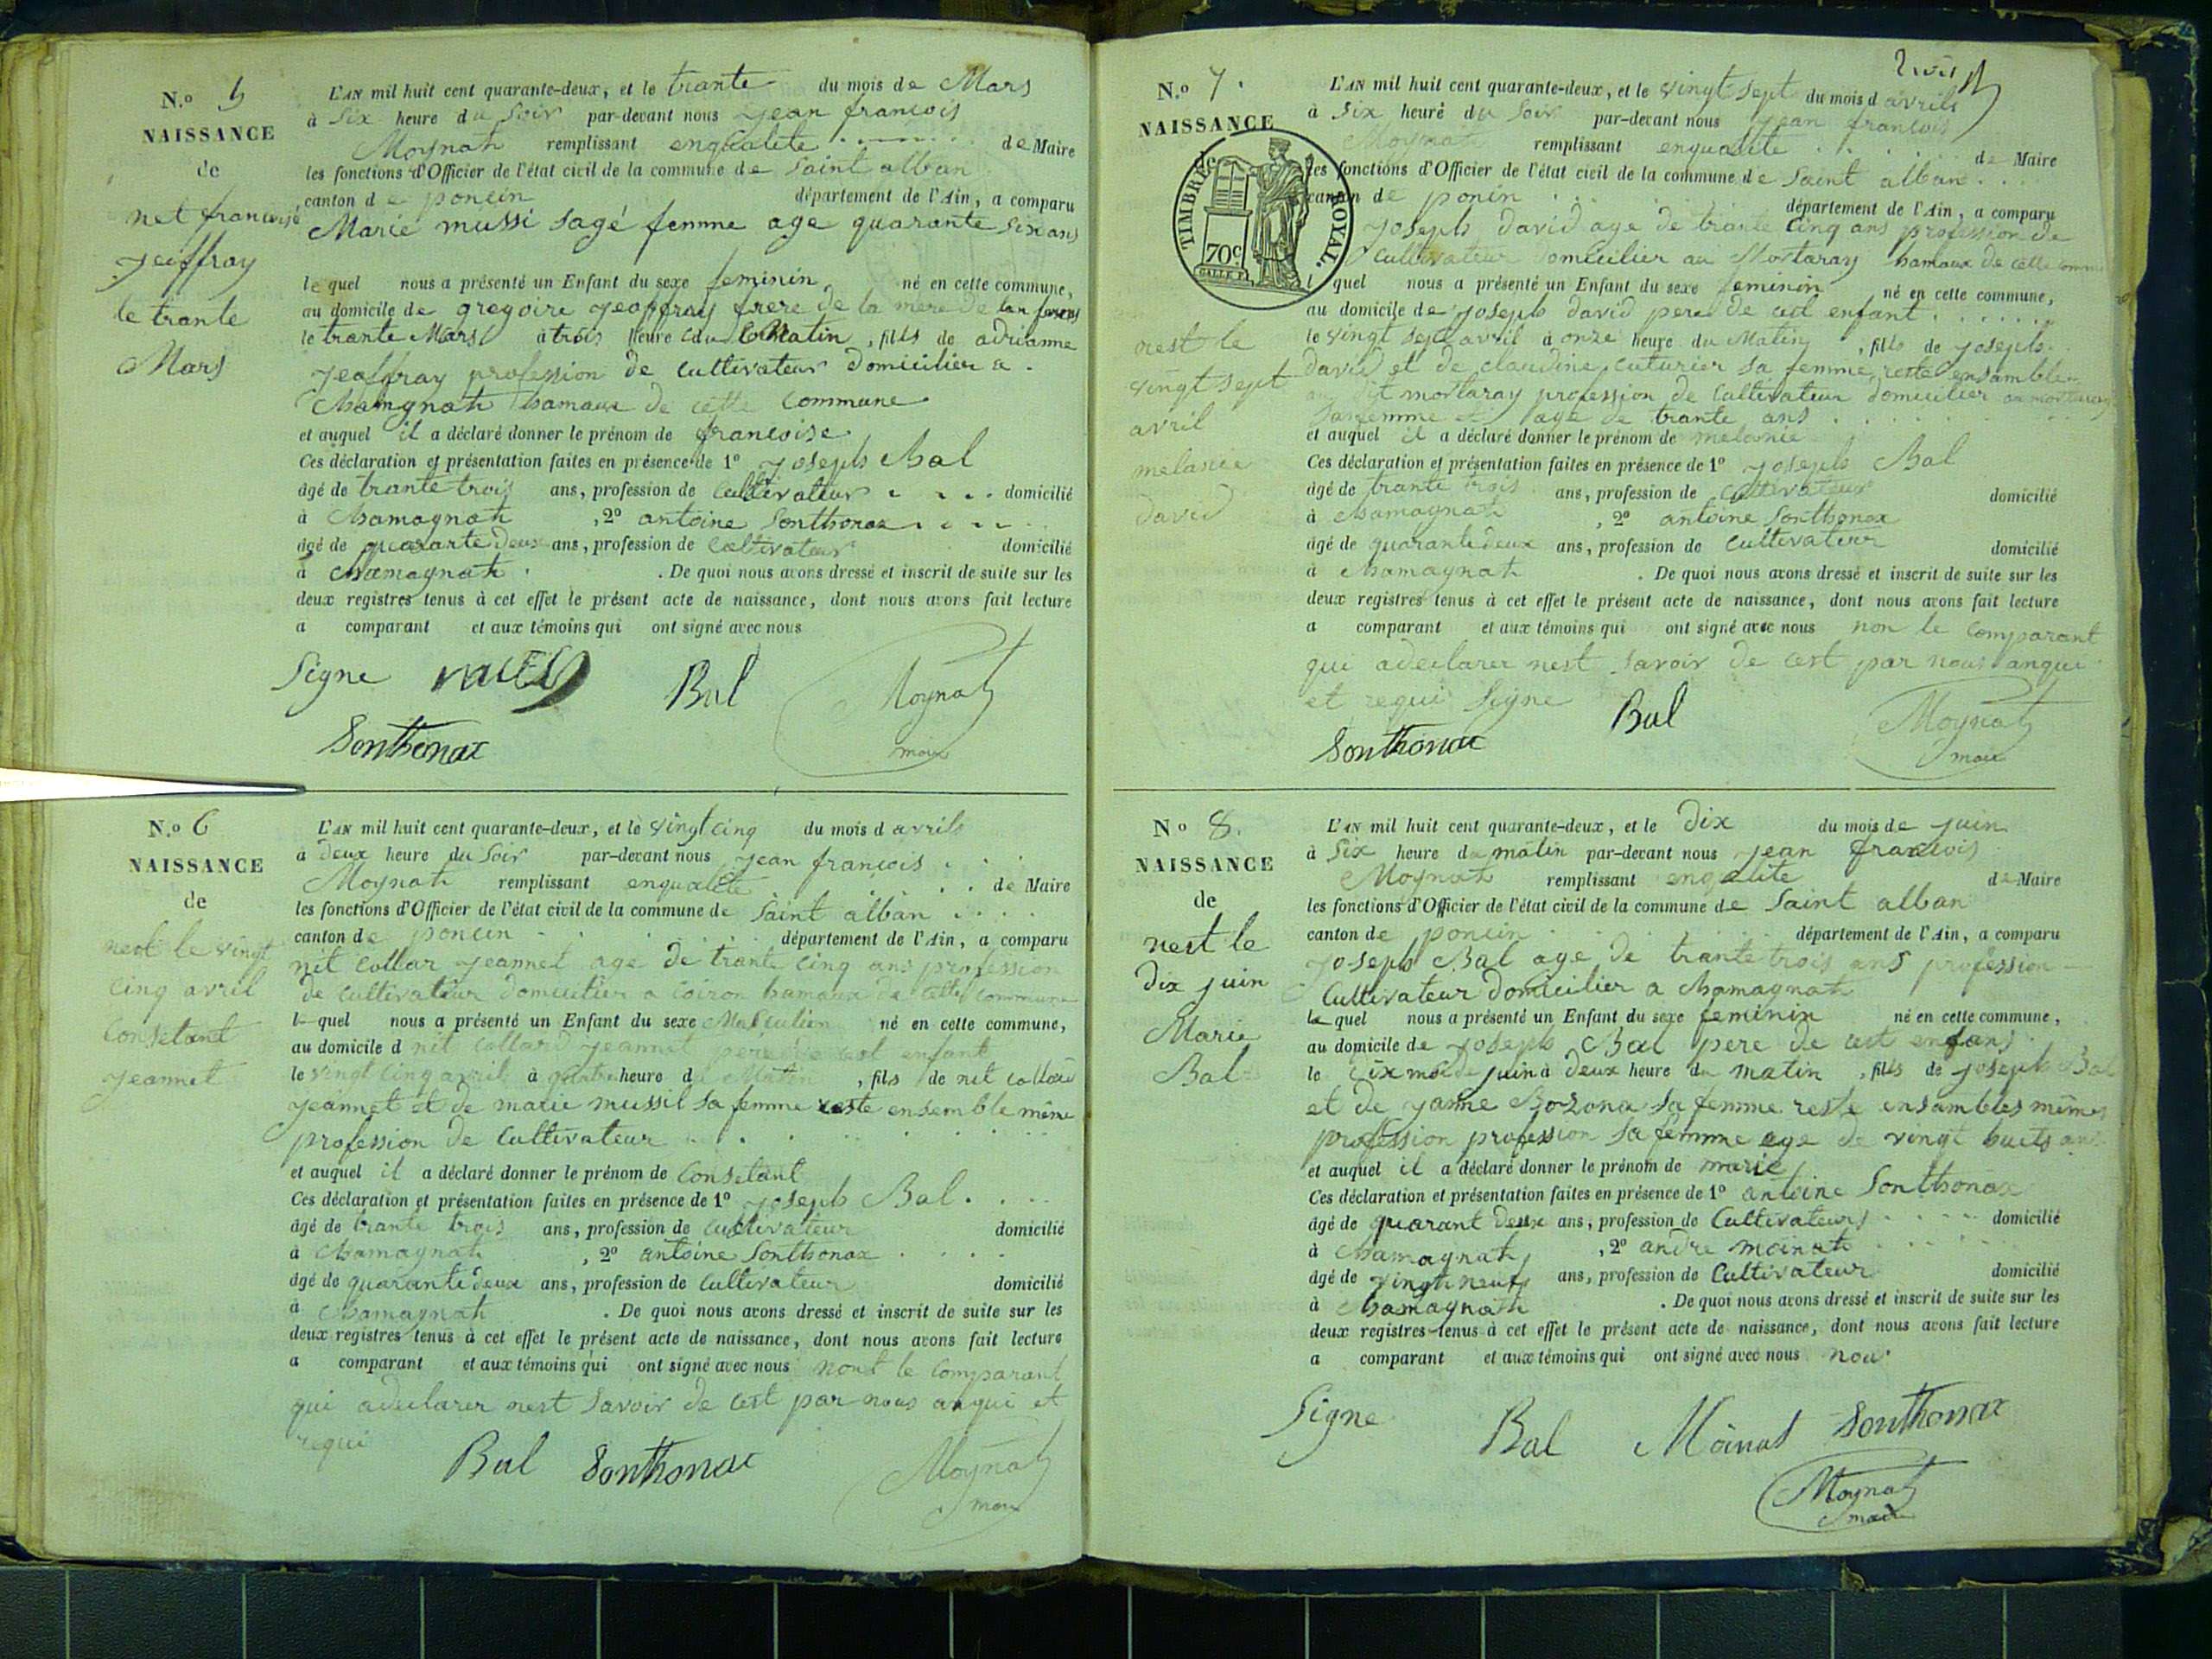 N.o 5
NAISSANCE
de
net francoise
jeaffray
le trante
Mars
L'AN mil huit cent quarante-deux, et le trante du mois de Mars
à Six heure du Soir par-devant nous jean francois
Moynat remplissant enqualite de Maire
les fonctions d'Officier de l'état civil de la commune de Saint alban
canton de poncin département de l'Ain, a comparu
Marie mussi sage femme age quarante six ans
le quel nous a présenté un Enfant du sexe feminin né en cette commune,
au domicile de gregoire jeaffray frere de la mere de
le trante Mars à trois heure du Matin, fills de adrianne
jeaffray profession de cultivateur domicilier a
Chamagnat hamaux de cette commune
et auquel il a déclaré donner le prénom de francoise
Ces déclaration et présentation faites en présence de 1º joseph Bal
âgé de trante trois ans, profession de Cultivateur domicilié
à Chamagnat, 2º antoine Sonthonax
âgé de quarante deux ans, profession de Cultivateur domicilié
à Chamagnat. De quoi nous avons dressé et inscrit de suite sur les
deux registres tenus à cet effet le présent acte de naissance, dont nous avons fait lecture
a comparant et aux témoins qui ont signé avec nous
Signe Bal Moynat
Sonthonax maire
N.o 6
NAISSANCE
de
nest le vingt
cinq avril
Consetant
jeannet
L'AN mil huit cent quarante-deux, et le vingt cinq du mois d avrils
à deux heure du Soir par-devant nous jean françois
Moynat remplissant enqualite de Maire
les fonctions d'Officier de l'état civil de la commune de Saint alban
canton de poncin département de l'Ain, a comparu
nit collar jeannet age de trante cinq ans profession
de cultivateur domicilier a Coiron hamaux de cette commune
le quel nous a présenté un Enfant du sexe Masculien né en cette commune,
au domicile d nit collard jeannet pere de cest enfant
le vingt cinq avril à quatre heure du Matin, fils de nit collard
jeannet et de marie mussil sa femme reste ensemble même
profession de Cultivateur
et auquel il a déclaré donner le prénom de Consetant
Ces déclaration et présentation faites en présence de 1º joseph Bal
âgé de trante trois ans, profession de Cultivateur domicilié
à Chamagnat, 2º antoine Sonthonax
âgé de quarante deux ans, profession de Cultivateur domicilié
à Chamagnat. De quoi nous avons dressé et inscrit de suite sur les
deux registres tenus à cet effet le présent acte de naissance, dont nous avons fait lecture
a comparant et aux témoins qui ont signé avec nous nont le comparant
qui adeclarer nest savoir de cest par nous anqui et
requi
Bal Sonthonax Moynat
maire
N.o 7.
NAISSANCE
de
TIMBRE ROYAL.
70c
nest le
vingt sept
avril
melanie
david
L'AN mil huit cent quarante-deux, et le vingt sept du mois d avrils
à Six heure du Soir par-devant nous jean francois
Moynat remplissant enqualite de Maire
les fonctions d'Officier de l'état civil de la commune de Saint alban
canton de ponin département de l'Ain, a comparu
joseph david age de trante cinq ans profession de
Cultivateur domicilier au Mortaray hamaux de cette commune
l quel nous a présenté un Enfant du sexe feminin né en cette commune,
au domicile de joseph david pere de cest enfant
le vingt sept avril à onze heure du Matin, fills de joseph
david et de claudine cuturier sa femme reste ensamble
au dit mortaray profession de Cultivateur domicilier au mortaray
safemme age de trante ans
et auquel il a déclaré donner le prénom de melanie
Ces déclaration et présentation faites en présence de 1º joseph Bal
âgé de trante trois ans, profession de Cultivateur domicilié
à Chamagnat, 2º antoine Sonthonax
âgé de quarante deux ans, profession de Cultivateur domicilié
à Chamagnat. De quoi nous avons dressé et inscrit de suite sur les
deux registres tenus à cet effet le présent acte de naissance, dont nous avons fait lecture
a comparant et aux témoins qui ont signé avec nous non le comparant
qui adeclarer nest savoir de cest par nous anqui
et requi Signe Bal Moynat
Sonthonax maire
No 8.
NAISSANCE
de
nest le
dix juin
Marie
Bal
L'AN mil huit cent quarante-deux, et le Dix du mois de juin
à Six heure du matin par-devant nous jean francois
Moynat remplissant enqalite de Maire
les fonctions d'Officier de l'état civil de la commune de Saint alban
canton de poncin département de l'Ain, a comparu
joseph Bal age de trante trois ans profession
Cultivateur domicilier a Chamagnat
le quel nous a présenté un Enfant du sexe feminin né en cette commune,
au domicile de joseph Bal pere de cest enfans
le juin à deux heure du matin, fills de joseph Bal
et de janne Bozona sa femme reste ensambles mêmes
profession profession sa femme age de vingt huits ans
et auquel il a déclaré donner le prénom de marie
Ces déclaration et présentation faites en présence de 1º antoine Sonthonax
âgé de quarant deux ans, profession de Cultivateurs domicilié
à Chamagnat, 2º andre moinat
âgé de vingt neuf ans, profession de Cultivateur domicilié
à Chamagnat. De quoi nous avons dressé et inscrit de suite sur les
deux registres tenus à cet effet le présent acte de naissance, dont nous avons fait lecture
a comparant et aux témoins qui ont signé avec nous nou
Signe Bal Moinat Sonthonax
Moynat
maire